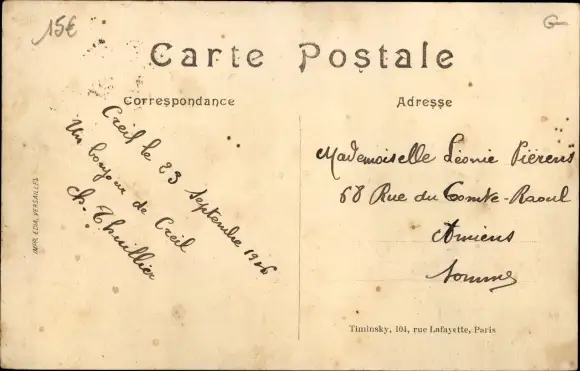 15€
G-
Carte Postale
Correspondance
Adresse
Creil le 23 Septembre 1906
Un bonjour de Creil
Ch. Thuillier
Mademoiselle Léonie Piérens
68 Rue du Comte-Raoul
Amiens
Somme
IMPR. EDIA, VERSAILLES
Timinsky, 104, rue Lafayette, Paris